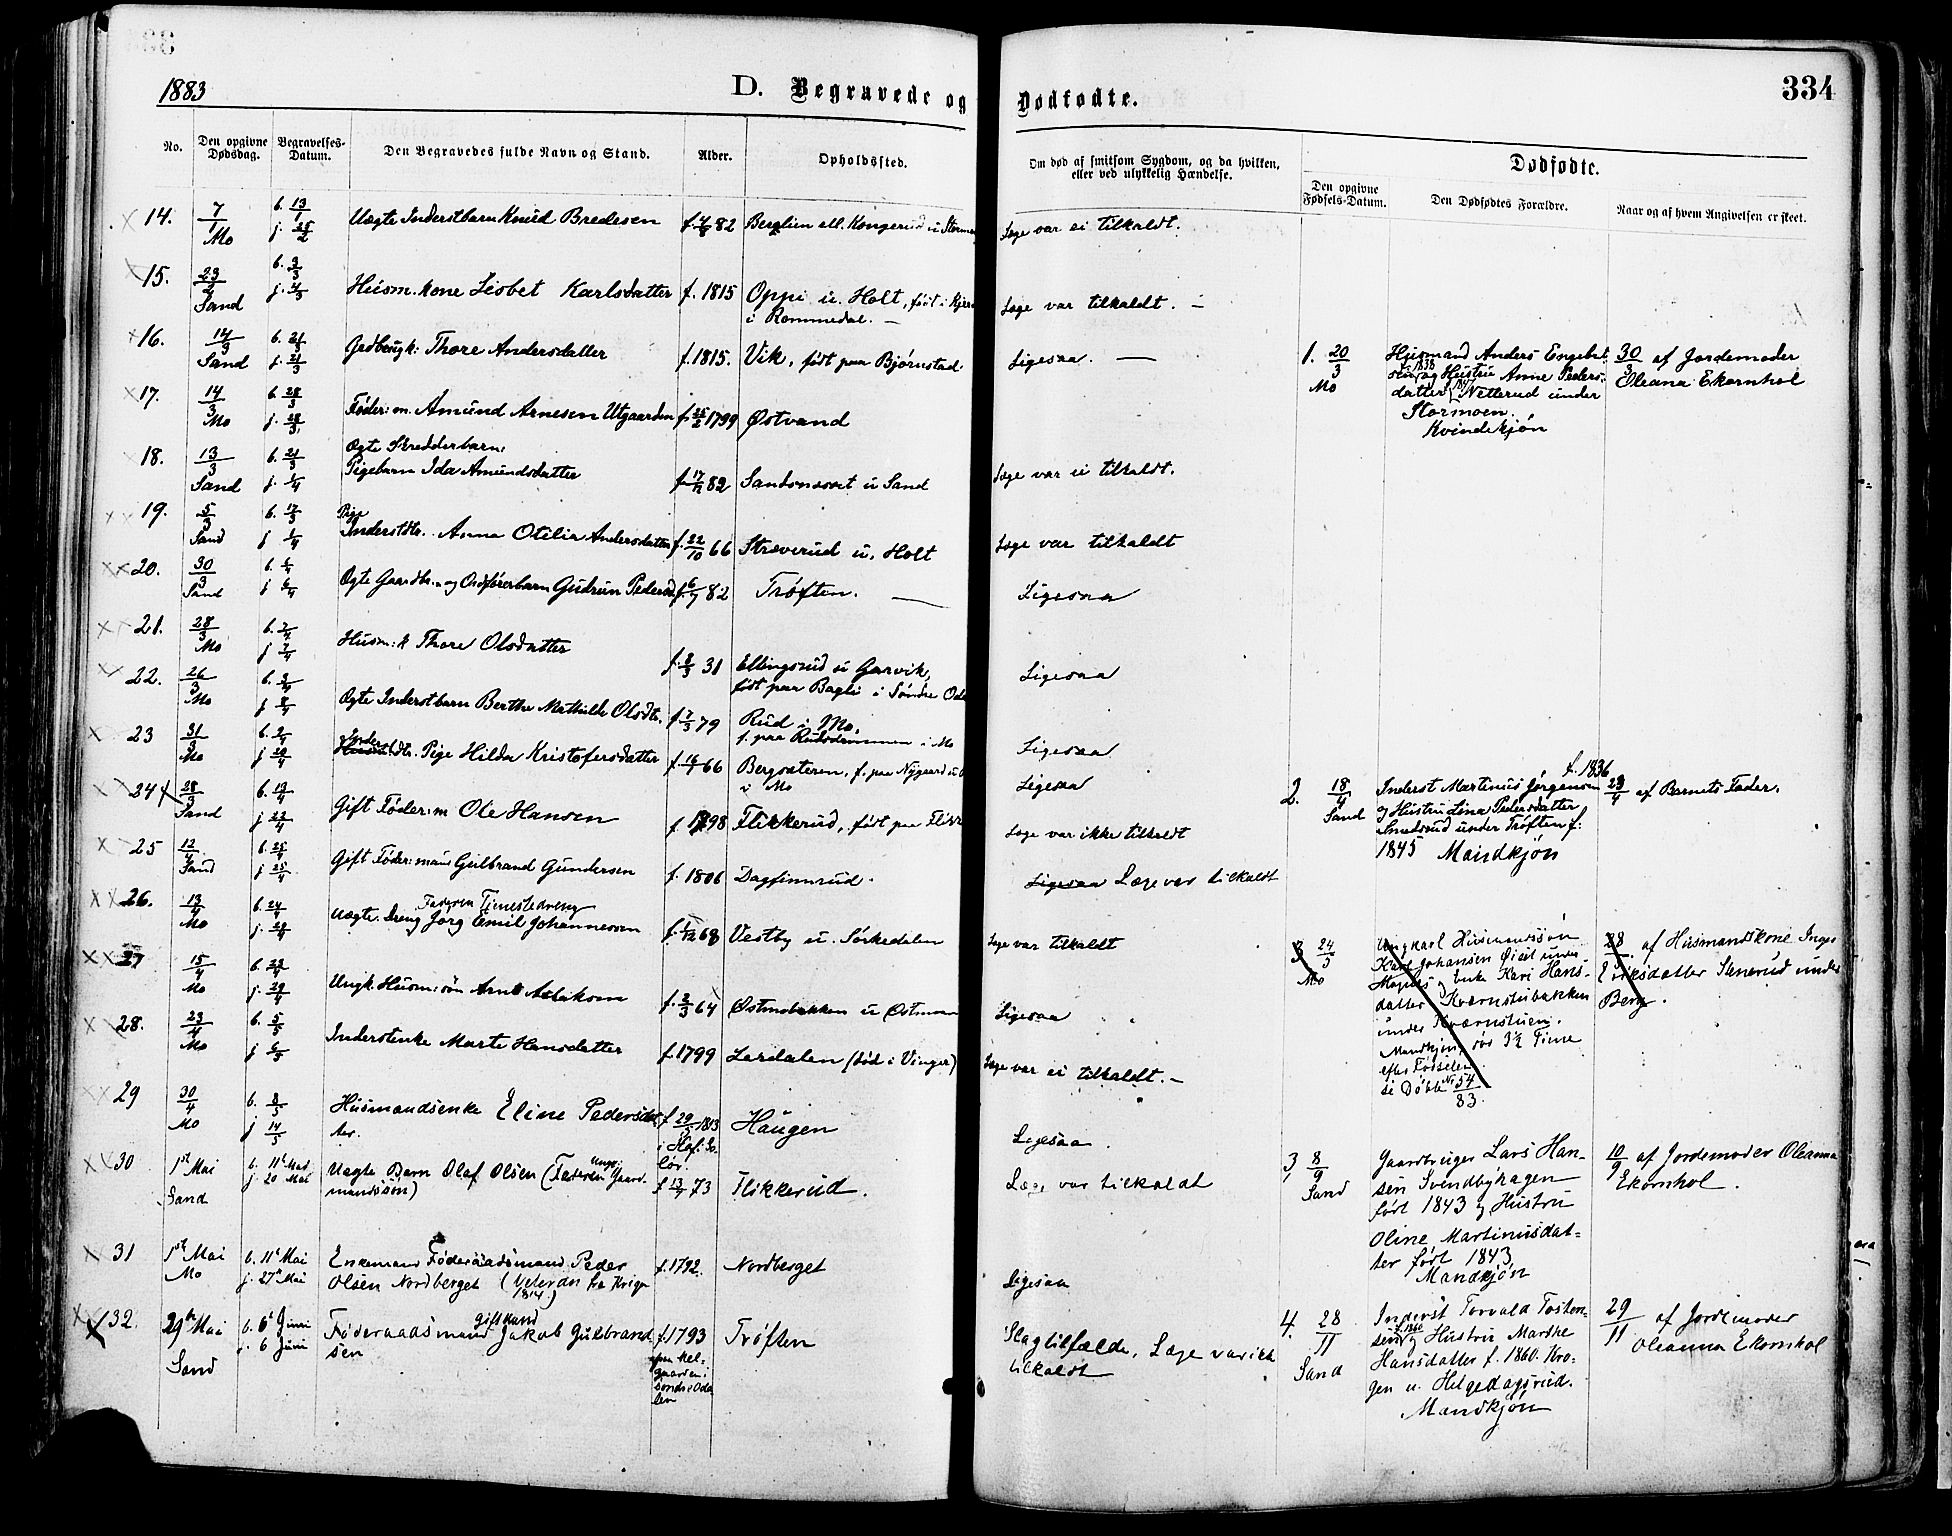 1883
D. Begravede og Dødfødte.
334
No.
Den opgivne Dødsdag.
Begravelses-Datum.
Den Begravedes fulde Navn og Stand.
Alder.
Opholdssted.
Om død af smitsom Sygdom, og da hvilken, eller ved ulykkelig Hændelse.
Dødfødte.
Den opgivne Fødsels-Datum.
Den Dødfødtes Forældre.
Naar og af hvem Angivelsen er skeet.
14. 7/1 Mo b. 13/1 j. 25/2 Uægte Inderstbarn Knud Bredesen f. 4/8 82 Berglien ell. Kongerud u Stormo
Læge var ei tilkaldt.
15. 23/2 Sand b. 3/3 j. 4/3 Husm. kone Lisbet Karlsdatter f. 1815 Oppi u. Holt, født i
i Rommedal. —
Læge var tilkaldt. —
16. 14/3 Sand b. 21/3 j. 21/3 Grdbrugk: Thore Andersdatter f. 1815. Vik, født paa Bjørnstad.
Ligesaa. —
17. 14/3 Mo b. 28/3 j. 28/3 Føder: m. Amund Arnesen Utgaarden f. 25/2 1799 Østvand
18. 13/3 Sand b. 21/3 j. 1/4 Ægte Skredderbarn
Pigebarn Ida Amundsdatter f. 17/12 82 u Sand
Læge var ei tilkaldt.
19. 5/3 Sand b. 17/3 j 1/4 Pige
Inderstdtr. Anna Otilia Andersdatter f. 22/10 66 Stræverud u. Holt
Læge var tilkaldt
20. 30/3 Sand b. 6/4 j 6/4 Ægte Gaardbr. og Ordførerbarn Gudrun Pedersd f. 6/7 82 Trøften. —
Ligesaa
21. 28/3 Mo b. 2/4 j 7/4 Husm: k Thore Olsdatter f. 8/3 31 Ellingsrud u Garvik,
født paa Bagli i Søndre Oda
Ligesaa
22. 26/3 Mo b. 3/4 j 8/4 Ægte Inderstbarn Berthe Mathilde Olsdtr. f. 7/3 79 Rud i Mo,
f. paa Rudsdammen i Mo
Ligesaa
23 31/3 Mo b. 9/4 j 20/4 Inderst
Pige Hilda Kristofersdatter f. 16/7 66 Bergsæteren, f. paa Nygaard u
i Mo
Ligesaa
24 28/3 Sand b. 13/4 j 22/4 Gift Føder: m Ole Hansen f 1798 Flikkerud, født paa Flikk
Læge var ikke tilkaldt
25 12/4 Sand b. 25/4 j. 25/4 Gift Føder: man Gulbrand Gundersen f. 1806 Dagfinnrud.
Ligesaa Læge var tilkaldt
26. 13/4 Mo b. 24/4 j. 29/4 Faderen Tjenestedreng
Uægte. Dreng Jørg Emil Johannessen f. 1/12 68 Vestby u. Sørkedalen
Læge var tilkaldt
27 15/4 Mo b. 23/4 j. 29/4 Ungk. Husm: søn Arnt f. 2/3 64 Østmobakken u Østmoen
Ligesaa
28. 23/4 Mo b. 5/5 j 6/5 Inderstenke Marte Hansdatter f. 1799 Lerdalen (død i Vinger)
Læge var ei tilkaldt. —
29 30/4 Mo b. 8/5 j 14/5 Husmandsenke Eline Pedersdat
ter. f 29/5 1813
i Hof: So
lør. Haugen
Ligesaa.
30 1st Mai Sand b. 11t Mai j. 20 Mai Uægte Barn Olaf Olsen (Faderen Ungk: Gaard-
mandssøn) f 13/7 73 Flikkerud.
Læge var tilkaldt
31 1st Mai Mo b. 11t Mai j. 27t Mai Enkemand Føderaadsmand Peder
Olsen Nordberget (Veteran fra Krigen
1814.) f. 1792. Nordberget
Ligesaa
32. 29de Mai Sand b. 6t Juni j. 6 Juni gift Mand
Føderaadsmand Jakob Gulbrand-
sen f. 1793
paa Mel-
gaarden i
Søndre Oda
len Trøften
Slagtilfælde, Læge var ikke
tilkaldt
1. 20/3 Mo Husmand Anders Engebret
sen f. 1838 og Hustru Anne Peders-
datter f. 1847 Netterud under
Stormoen.
Kvindekjøn
30/3 af Jordemoder
Oleana Ekornhol
2. 18/4 Sand f. 1836
Inderst Martinus Jørgensen
og Hustru Lina Pedersdatter
Smedsrud under Trøften f.
1845 Mandkjøn
23/4 af Barnets Fader.
3 24/5 Mo Ungkarl Husmandssøn
Karl Johansen Øiset under
og Enke Kari Hans-
datter Kværnstubakken
under Kværnstuen.
Mandkjøn, død 3½ Time
efter Fødselen
se Døbte No 54/83.
28/5 af Husmandskone Inger
Eriksdatter Stenerud under
Berg.
3, 8/9 Sand Gaardbruger Lars Han-
sen Svendbyhagen
født 1843 og Hustru
Oline Martinusdat-
ter født 1843
Mandkjøn
10/9 af Jordemoder Oleanna
Ekornhol.
4. 28/11 Sand Inderst Torvald Tosten-
sen f. 1860 og Hustru Marthe
Hansdatter f. 1860. Kro-
gen u. Helgedagsrud.
Mandkjøn
29/11 af Jordemoder
Oleanna Ekornhol